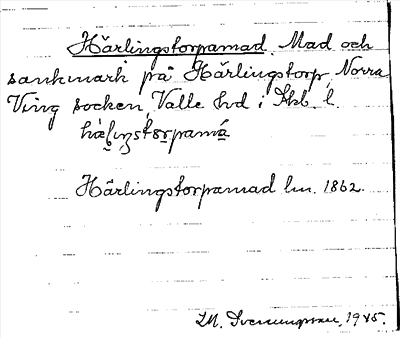 Härlingstorpamad. Mad och
sankmark på Härlingstorp, Norra
Ving socken, Valle hd i Skb. l.
Härlingstorpamad lm. 1862.
LM. Svenungsson, 1945.